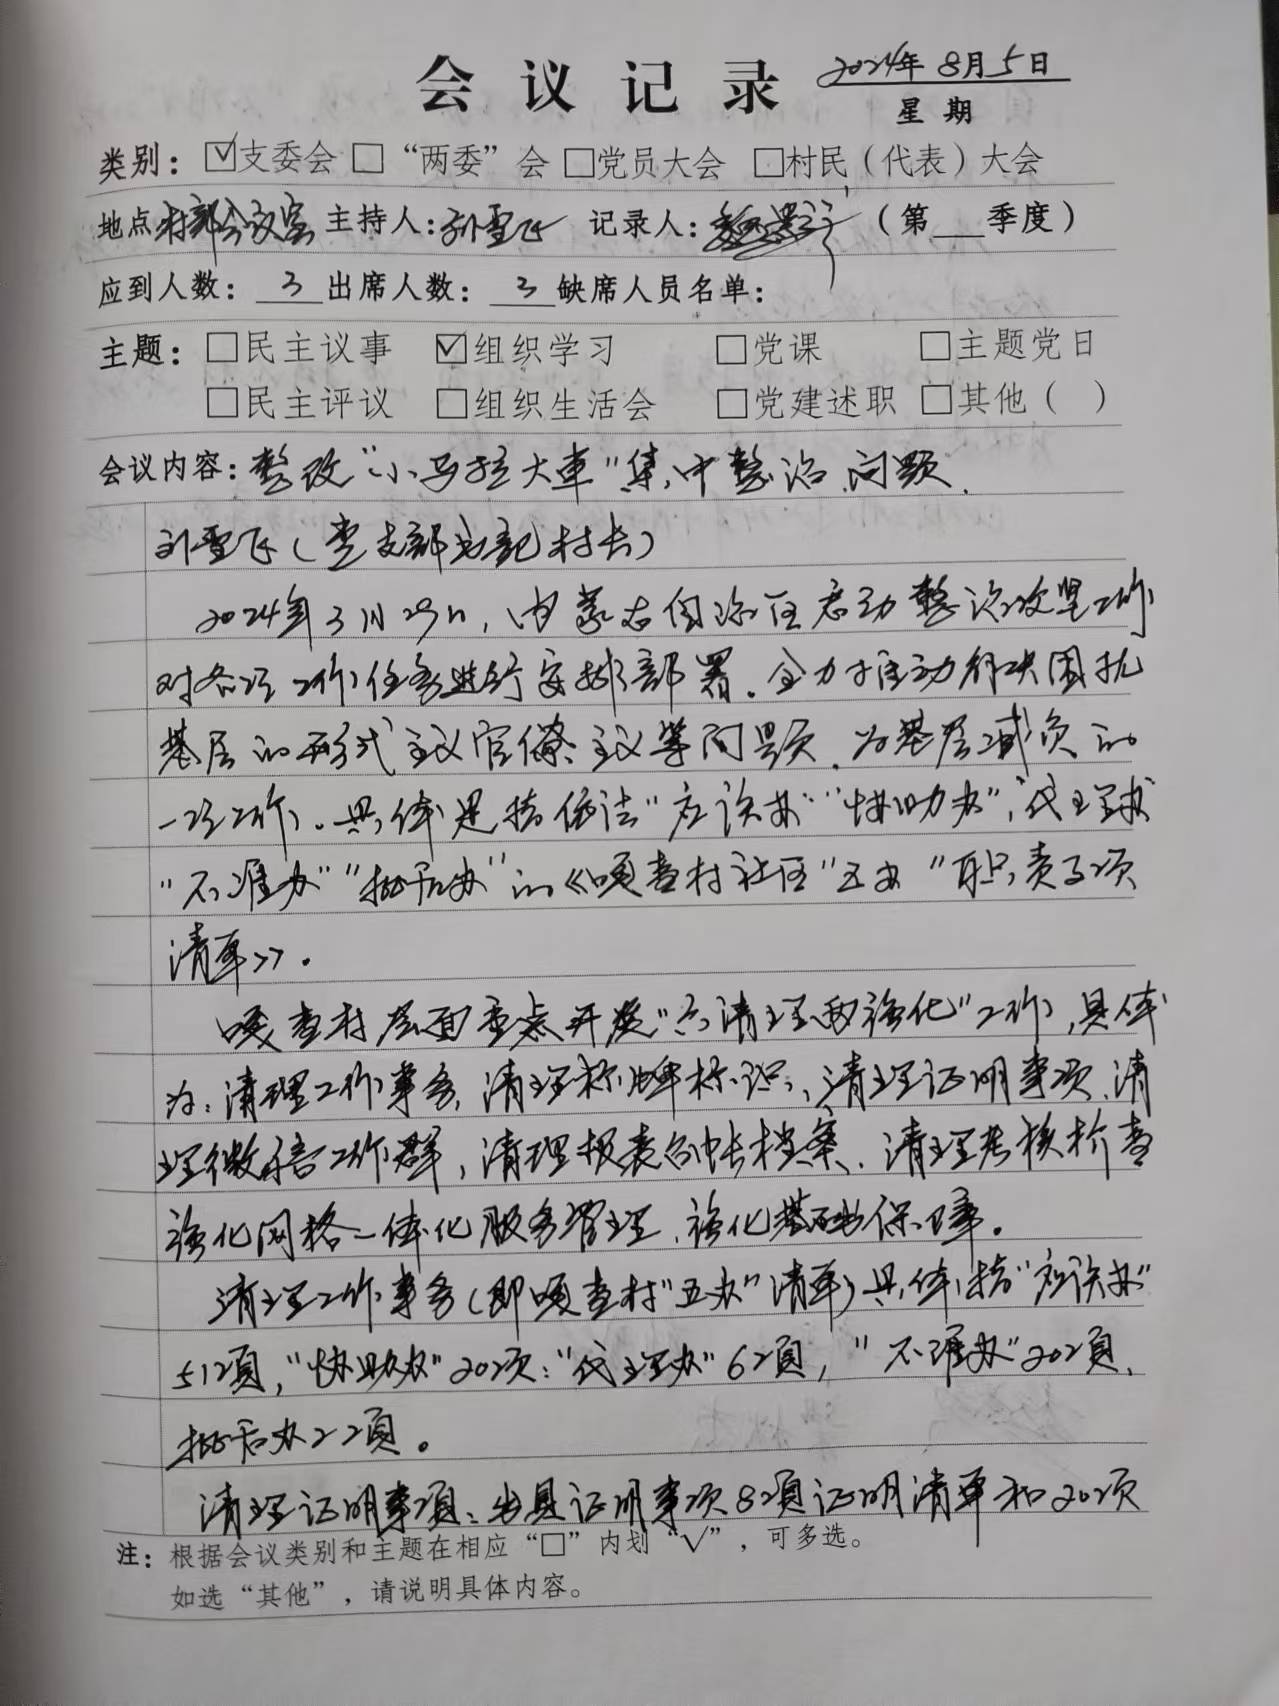 会议记录 2024年8月5日
星期
类别：☑支委会 □“两委”会 □党员大会 □村民（代表）大会
地点 村部会议室 主持人：刘雪飞 记录人： （第___季度）
应到人数：3 出席人数：3 缺席人员名单：
主题：□民主议事 ☑组织学习 □党课 □主题党日
□民主评议 □组织生活会 □党建述职 □其他（ ）
会议内容：整改“小马拉大车”集中整治问题.
刘雪飞（党支部书记村长）
2024年3月29日，内蒙古自治区启动整治攻坚工作
对各项工作任务进行安排部署.全力推动解决困扰
基层的形式主义官僚主义等问题.为基层减负的
一项工作。具体是指依法“应该办”“协助办”，“代理办”
“不准办”“批后办”的《嘎查村社区“五办”职责事项
清单》.
嘎查村层面重点开展“六清理两强化”工作，具体
为：清理工作事务，清理称牌标识、清理证明事项、清
理微信工作群，清理报表台帐档案、清理考核检查
强化网格一体化服务管理、强化基础保障。
清理工作事务（即嘎查村“五办”清单）具体指“应该办”
51项，“协助办”20项：“代理办”6项，“不准办”20项、
批后办22项。
清理证明事项：出具证明事项8项证明清单和20项
注：根据会议类别和主题在相应“□”内划“√”，可多选。
如选“其他”，请说明具体内容。